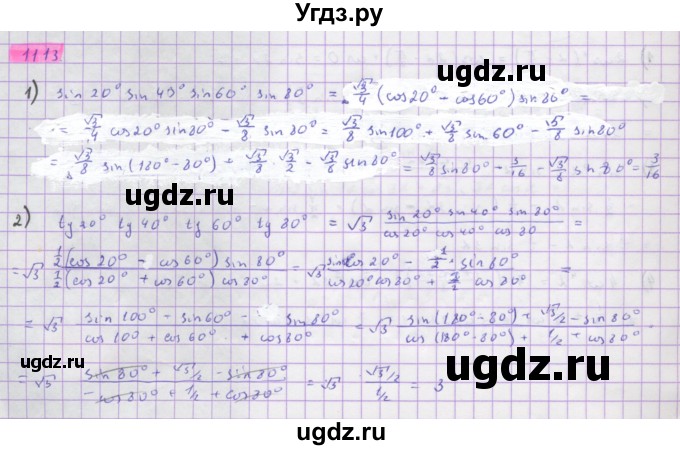 Угдз.ру
1113
1) sin 20° sin 40° sin 60° sin 80° = √3/4 (cos 20° - cos 60°) sin 80° =
= √3/4 cos 20° sin 80° - √3/8 sin 80° = √3/8 sin 100° + √3/8 sin 60° - √3/8 sin 80°
= √3/8 sin (180° - 80°) + √3/8 · √3/2 - √3/8 sin 80° = √3/8 sin 80° - 3/16 - √3/8 sin 80° = 3/16
udgz.ru
2) tg 20° tg 40° tg 60° tg 80° = √3 sin 20° sin 40° sin 80° / cos 20° cos 40° cos 80 =
= √3 1/2 (cos 20° - cos 60°) sin 80° / 1/2 (cos 20° + cos 60°) cos 80° = √3 sin 80° cos 20° - 1/2 · sin 80° / cos 20° cos 80° + 1/2 cos 80° =
= √3 sin 100° - sin 60° - sin 80° / cos 100 + cos 60° + cos 80° = √3 sin (180° - 80°) + √3/2 - sin 80° / cos (180° - 80°) + 1/2 + cos 80°
= √3 sin 80° + √3/2 - sin 80° / - cos 80° + 1/2 + cos 80° = √3 √3/2 / 1/2 = 3